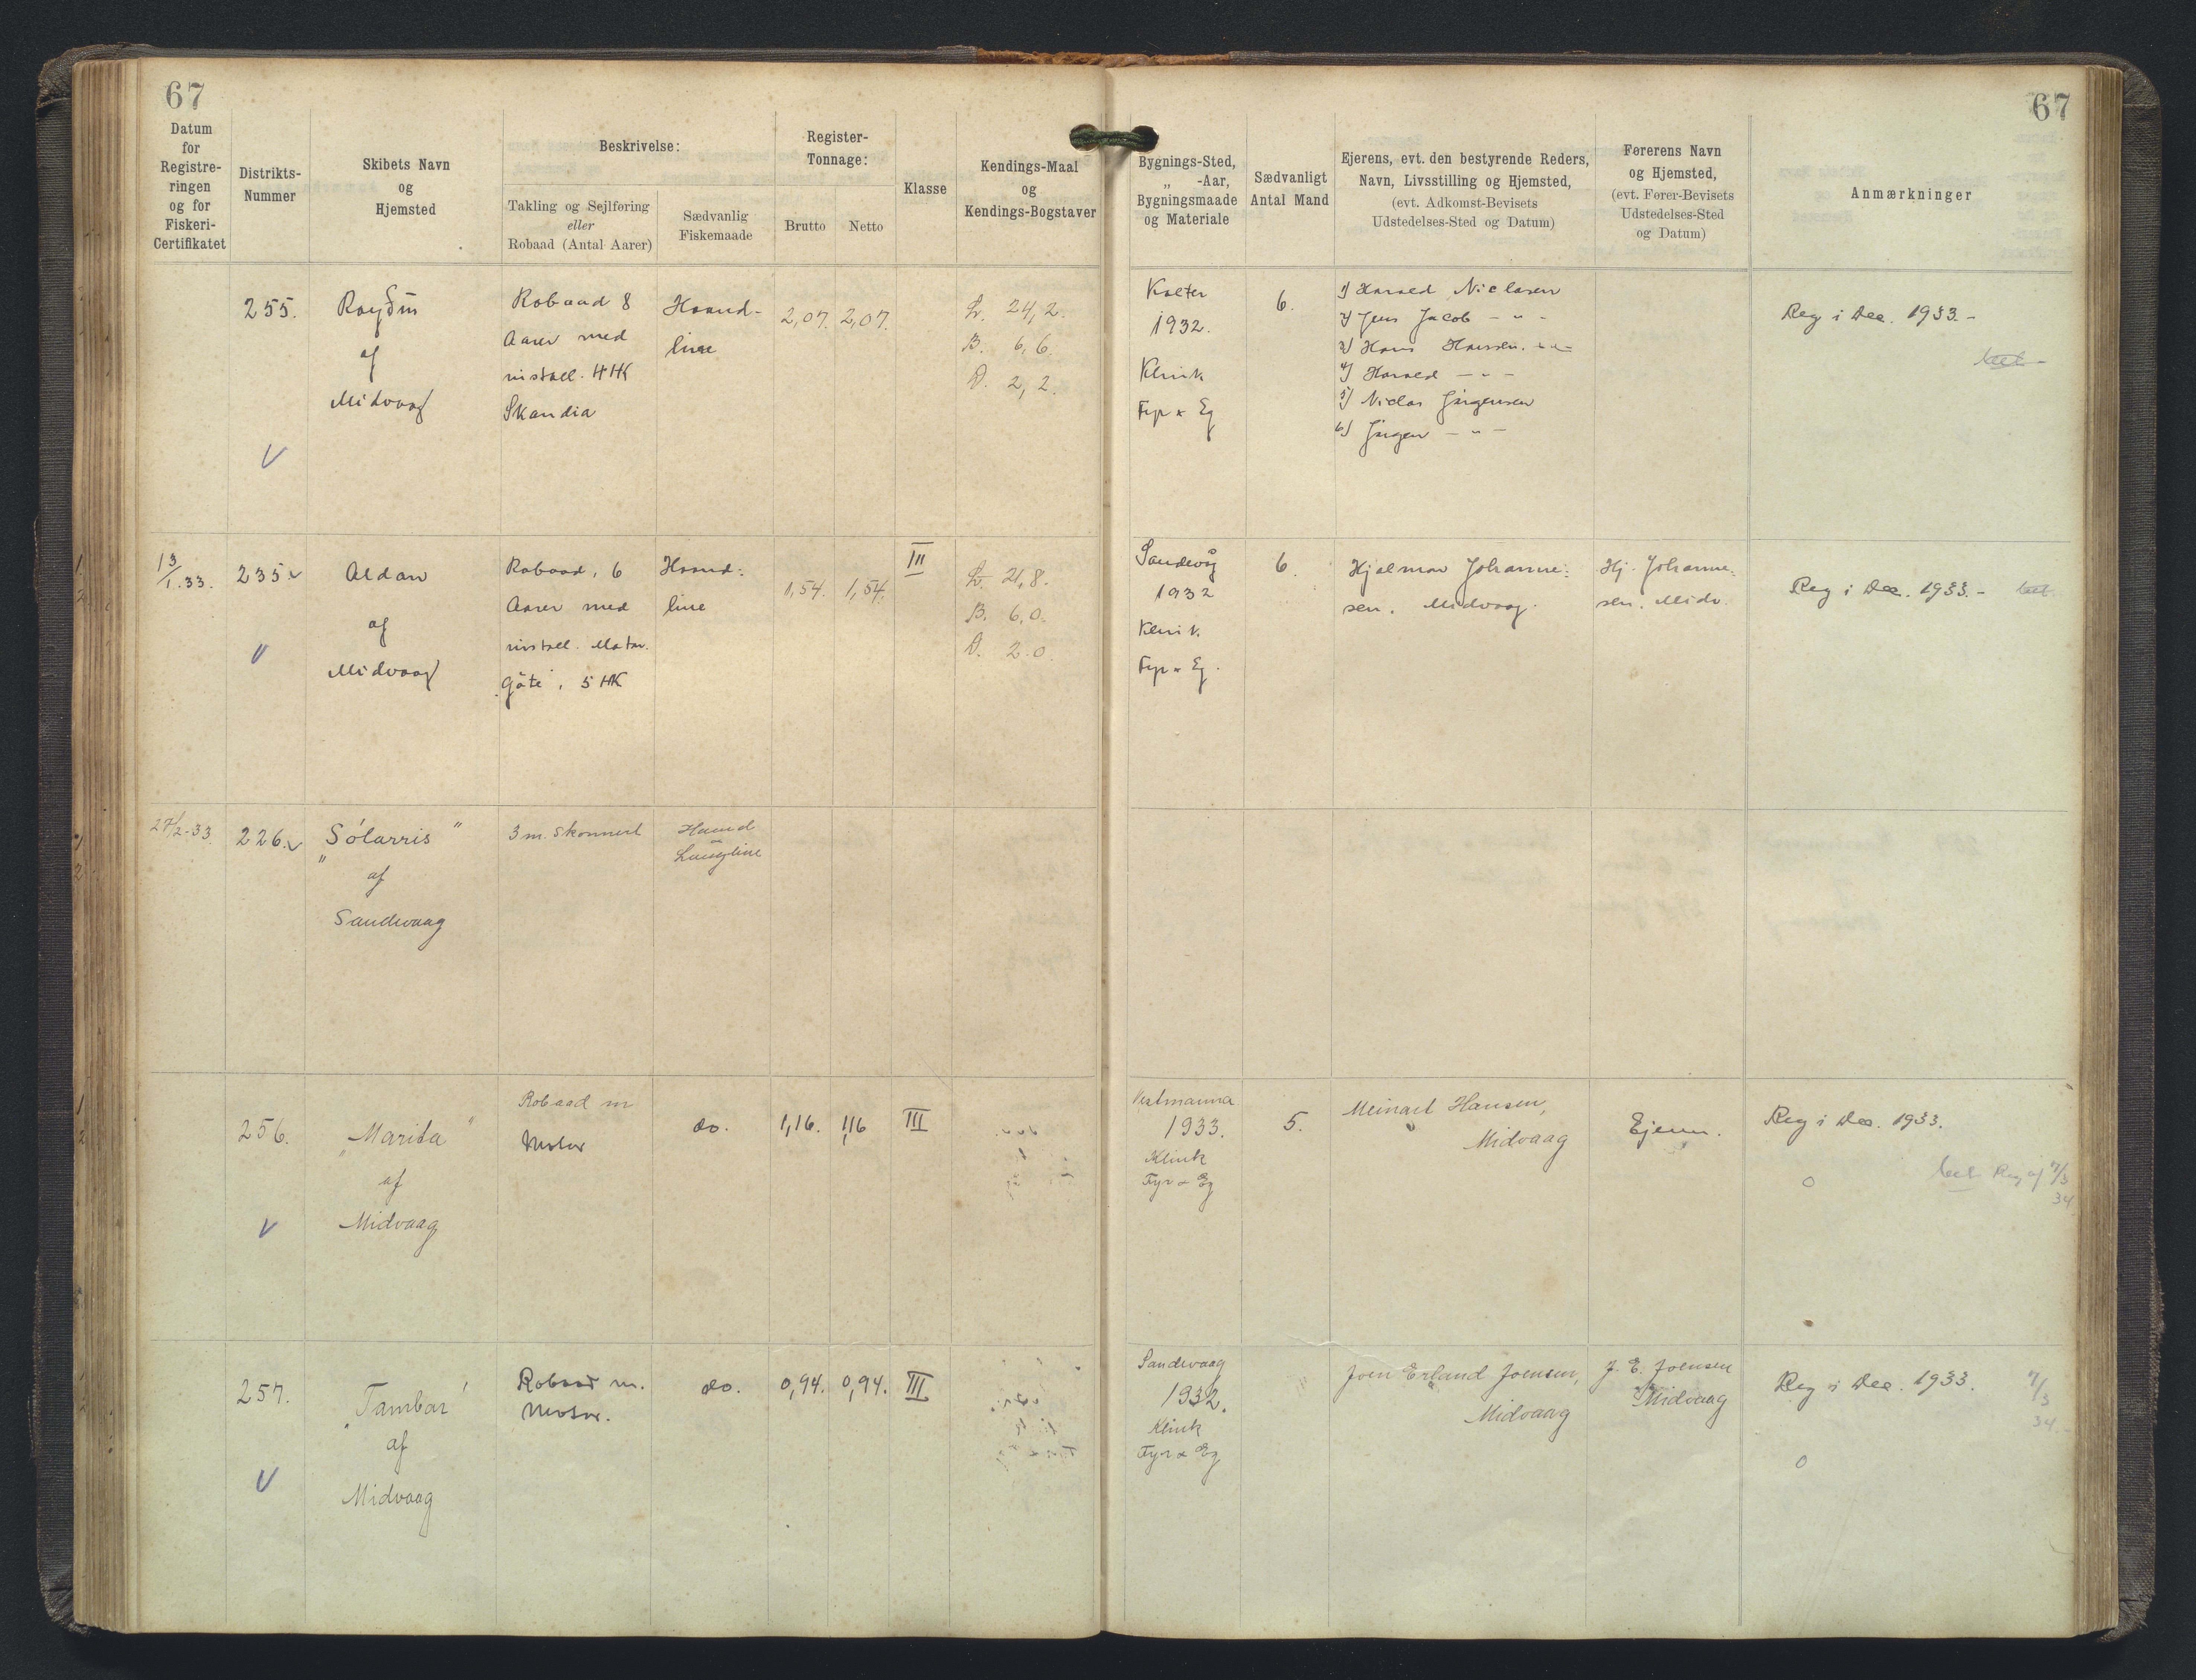 67
67
Datum
for
Registre-
ringen
og for
Fiskeri-
Certifikatet
Distrikts-
Nummer
Skibets Navn
og
Hjemsted
Beskrivelse:
Takling og Sejlføring
eller
Robaad (Antal Aarer)
Sædvanlig
Fiskemaade
Register-
Tonnage:
Brutto
Netto
Klasse
Kendings-Maal
og
Kendings-Bogstaver
Bygnings-Sted,
„ -Aar,
Bygningsmaade
og Materiale
Sædvanligt
Antal Mand
Ejerens, evt. den bestyrende Reders,
Navn, Livsstilling og Hjemsted,
(evt. Adkomst-Bevisets
Udstedelses-Sted og Datum)
Førerens Navn
og Hjemsted,
(evt. Fører-Bevisets
Udstedelses-Sted
og Datum)
Anmærkninger
255.
af
Midvaag
Robaad 8
Aarer med
install. 4 HK
Skandia
Haand-
line
2,07. 2,07.
L. 24,2.
B. 6,6.
D. 2,2.
Kolter
1932.
Klink
Fyr & Eg
6.
1) Harald Niclasen
2) Jens Jacob - " -
3) Hans Hansen. - " -
4) Harald - " -
5) Niclas Jørgensen
6) Jørgen - " -
Reg i Dec. 1933.-
13/1.33.
235
Aldan
af
Midvaag
Robaad, 6
Aarer med
install. Motor.
"Göta", 5 HK
Haand-
line
1,54. 1,54.
III
L. 21,8.
B. 6,0.
D. 2.0.
Sandevåg
1932
Klink
Fyr & Eg.
6.
Hjalmar Johanne-
sen. Midvaag.
Hj. Johanne-
sen. Midv.
Reg i Dec. 1933.-
27/2-33
226.
"Sólarris"
af
Sandevaag
3 m. Skonnert
Haand
Langline
256.
"Marita"
af
Midvaag
Robaad m
Motor
do.
1,16. 1,16
III
Vestmanna
1933.
Klink
Fyr & Eg
5.
Meinart Hansen,
Midvaag
Ejeren.
Reg i Dec. 1933.
Reg af 7/3
34
257.
"Tambar"
af
Midvaag
Robaad m.
Motor.
do.
0,94. 0,94.
III
Sandevaag
1932.
Klink
Fyr & Eg
Joen Erland Joensen,
Midvaag
J. E. Joensen
Midvaag
Reg i Dec. 1933.
7/3
34